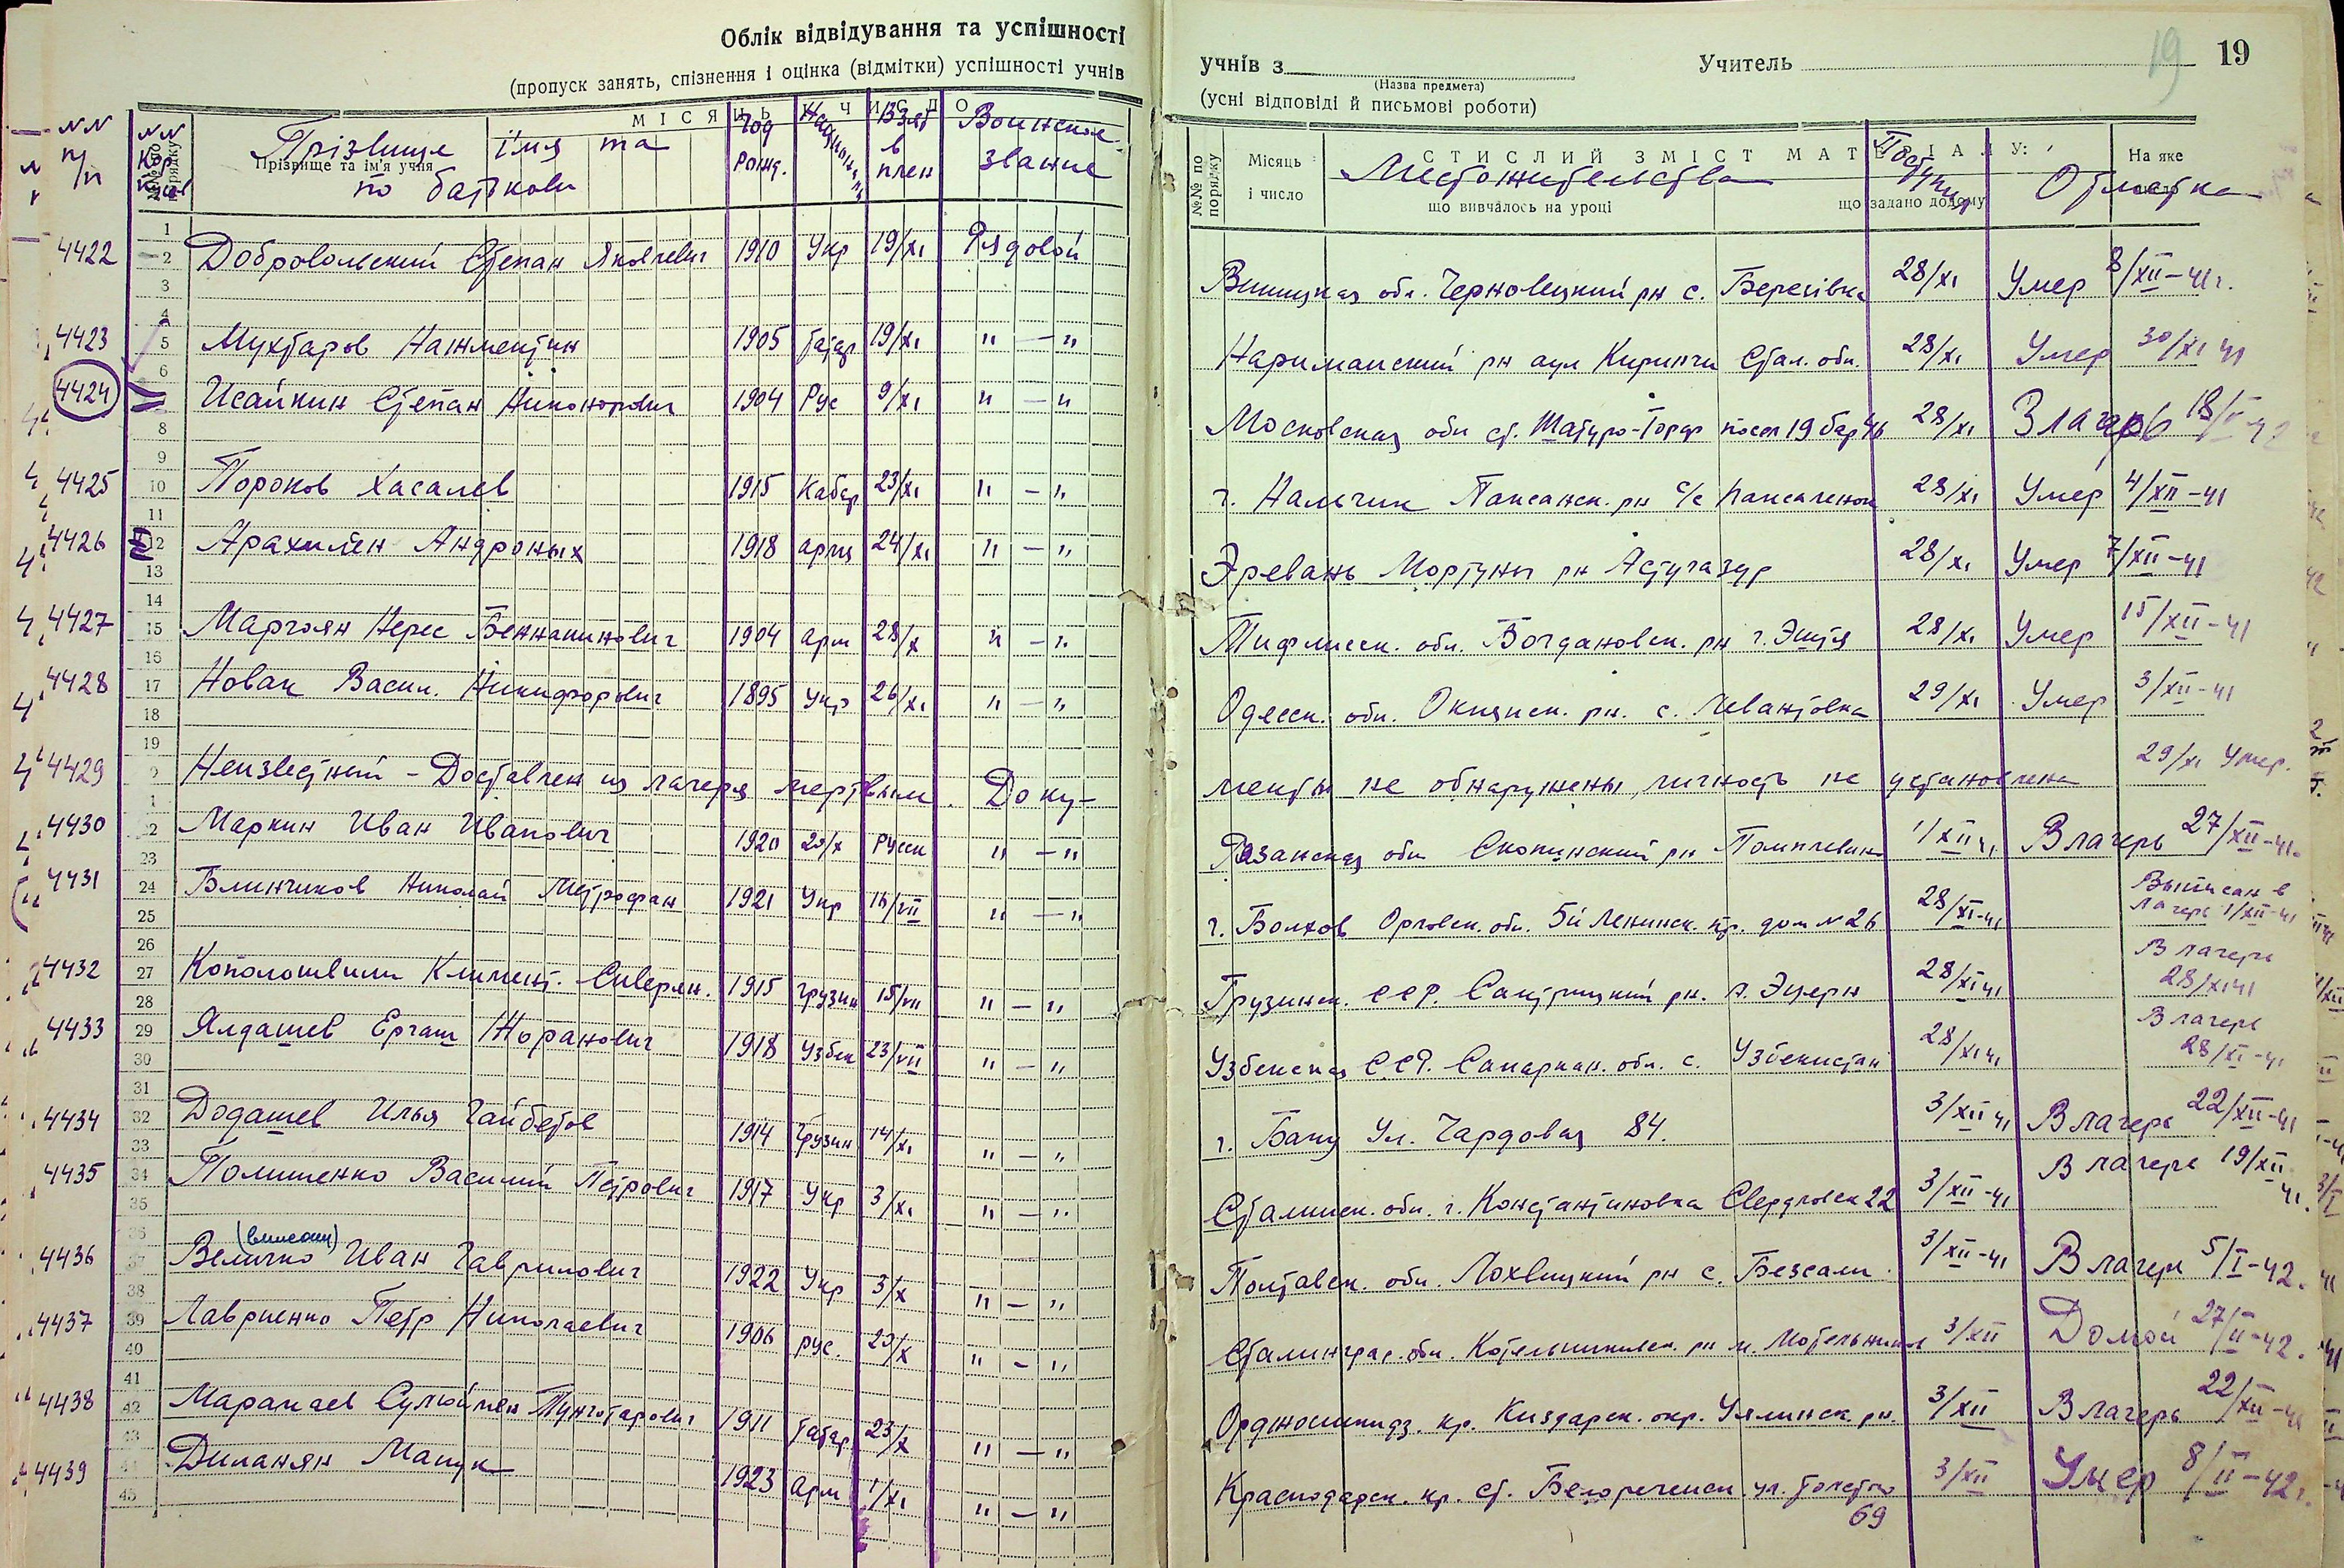 Облік відвідування та успішності
(пропуск занять, спізнення і оцінка (відмітки) успішності учнів
учнів з
(Назва предмета)
Учитель
19
19
(усні відповіді й письмові роботи)
NN п/п
NN
№№ по порядку
Прізвище та ім'я учня
Прізвище імя та по батькови
МІСЯЦЬ І ЧИСЛО
Год рожд.
Национ.
Взят в плен
Воинское звание
№№ по порядку
Місяць і число
СТИСЛИЙ ЗМІСТ МАТЕРІАЛУ:
що вивчалось на уроці
що задано додому
На яке
Местожительства
Поступил
Отметка
4422 Добровольский Степан Яковлевич 1910 Укр 19/XI Рядовой Винницкая обл. Черновецкий рн с. Березівка 28/XI Умер 8/XII-41г.
4423 Мухтаров Нажметин 1905 татар 19/XI "—" Нариманский рн аул Киринчи Стал. обл. 28/XI Умер 30/XI 41
4424 Исайкин Степан Никонорович 1904 Рус 9/XI "—" Московская обл ст. Шатуро-Торф посел 19 бар 46 28/XI В лагерь 18/ 42
4425 Пороков Хасалев 1915 Кабар 23/XI "—" г. Нальчик Паксанск. рн с/с 28/XI Умер 4/XII-41
4426 Арахилен Андроных 1918 армя 24/XI "—" Эревань Мортуны рн Астугазур 28/XI Умер 7/XII-41
4427 Маргоян Нерес Беннаминович 1904 арм 28/X "—" Тифлисск. обл. Богдановск. рн г. Эштя 28/XI Умер 15/XII-41
4428 Новак Васил. Никифорович 1895 Укр 26/XI "—" Одесск. обл. Окнянск. рн. с. Левантовка 29/XI Умер 3/XII-41
4429 Неизвестный - Доставлен из лагеря мертвым. Документы не обнаружены, личность не установлена 29/XI Умер.
4430 Маркин Иван Иванович 1920 25/X Русск "—" Рязанская обл Скопинский рн 1/XII 41 В лагерь 27/XII-41.
4431 Блинчиков Николай Метрофан 1921 Укр 16/VII "—" г. Болхов Орловск. обл. 5й Ленинск. пр. дом N 26 28/XI-41 Выписан в лагерь 1/XII-41
4432 Кополошвили Климент. Сиверян. 1915 Грузин 15/VII "—" Грузинск. ССР. рн. г. Эцери 28/XI 41 В лагерь 28/XI 41
4433 Ялдашев Ергаш Норанович 1918 Узбек 23/VII "—" Узбекская ССР. Самаркан. обл. с. Узбекистан 28/XI 41 В лагерь 28/XI-41
4434 Додашев Илья Гайбетов 1914 Грузин 14/XI "—" г. Баку Ул. Чардовая 84. 3/XII 41 В лагерь 22/XII-41
4435 Полишенко Василий Петрович 1917 Укр 3/XI "—" Сталинск. обл. г. Константиновка Свердловск 22 3/XII-41 В лагерь 19/XII 41.
(выписан)
4436 Величко Иван Гаврилович 1922 Укр 3/X "—" Полтавск. обл. Лохвицкий рн с. Безсалы. 3/XII-41 В лагерь 5/I-42.
4437 Лавриенко Петр Николаевич 1906 рус. 29/X "—" Сталинград. обл. Котельниковск. рн м. 3/XII Домой 27/II-42.
4438 Марапаев Сулюймен 1911 Татар 23/X "—" Орджоникидз. кр. Киздарск. окр. Уллинск рн. 3/XII В лагерь 22/XII-41
4439 Диланян Мапук 1923 Арм 1/XI "—" Краснодарск. кр. ст. Белореченск. ул. Толстго 69 3/XII Умер 8/II-42г.